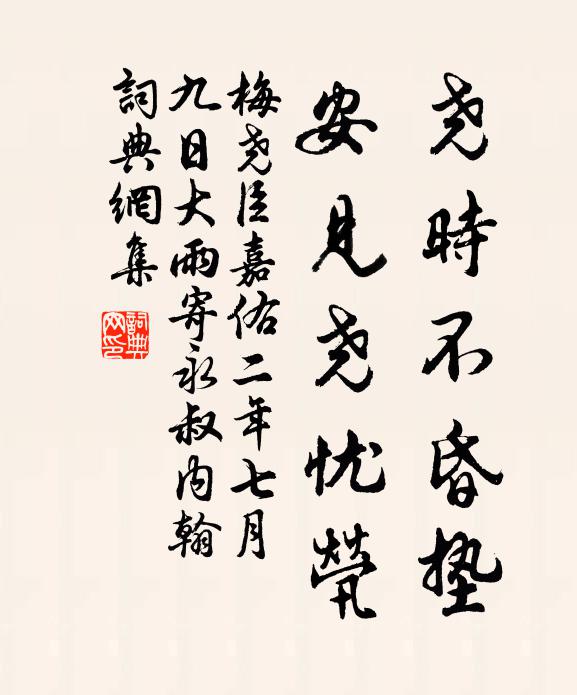 尧時不昏墊
安見尧忧煢
梅尧臣嘉佑二年七月
九日大雨寄永叔内翰
詞典網集
詞典网印